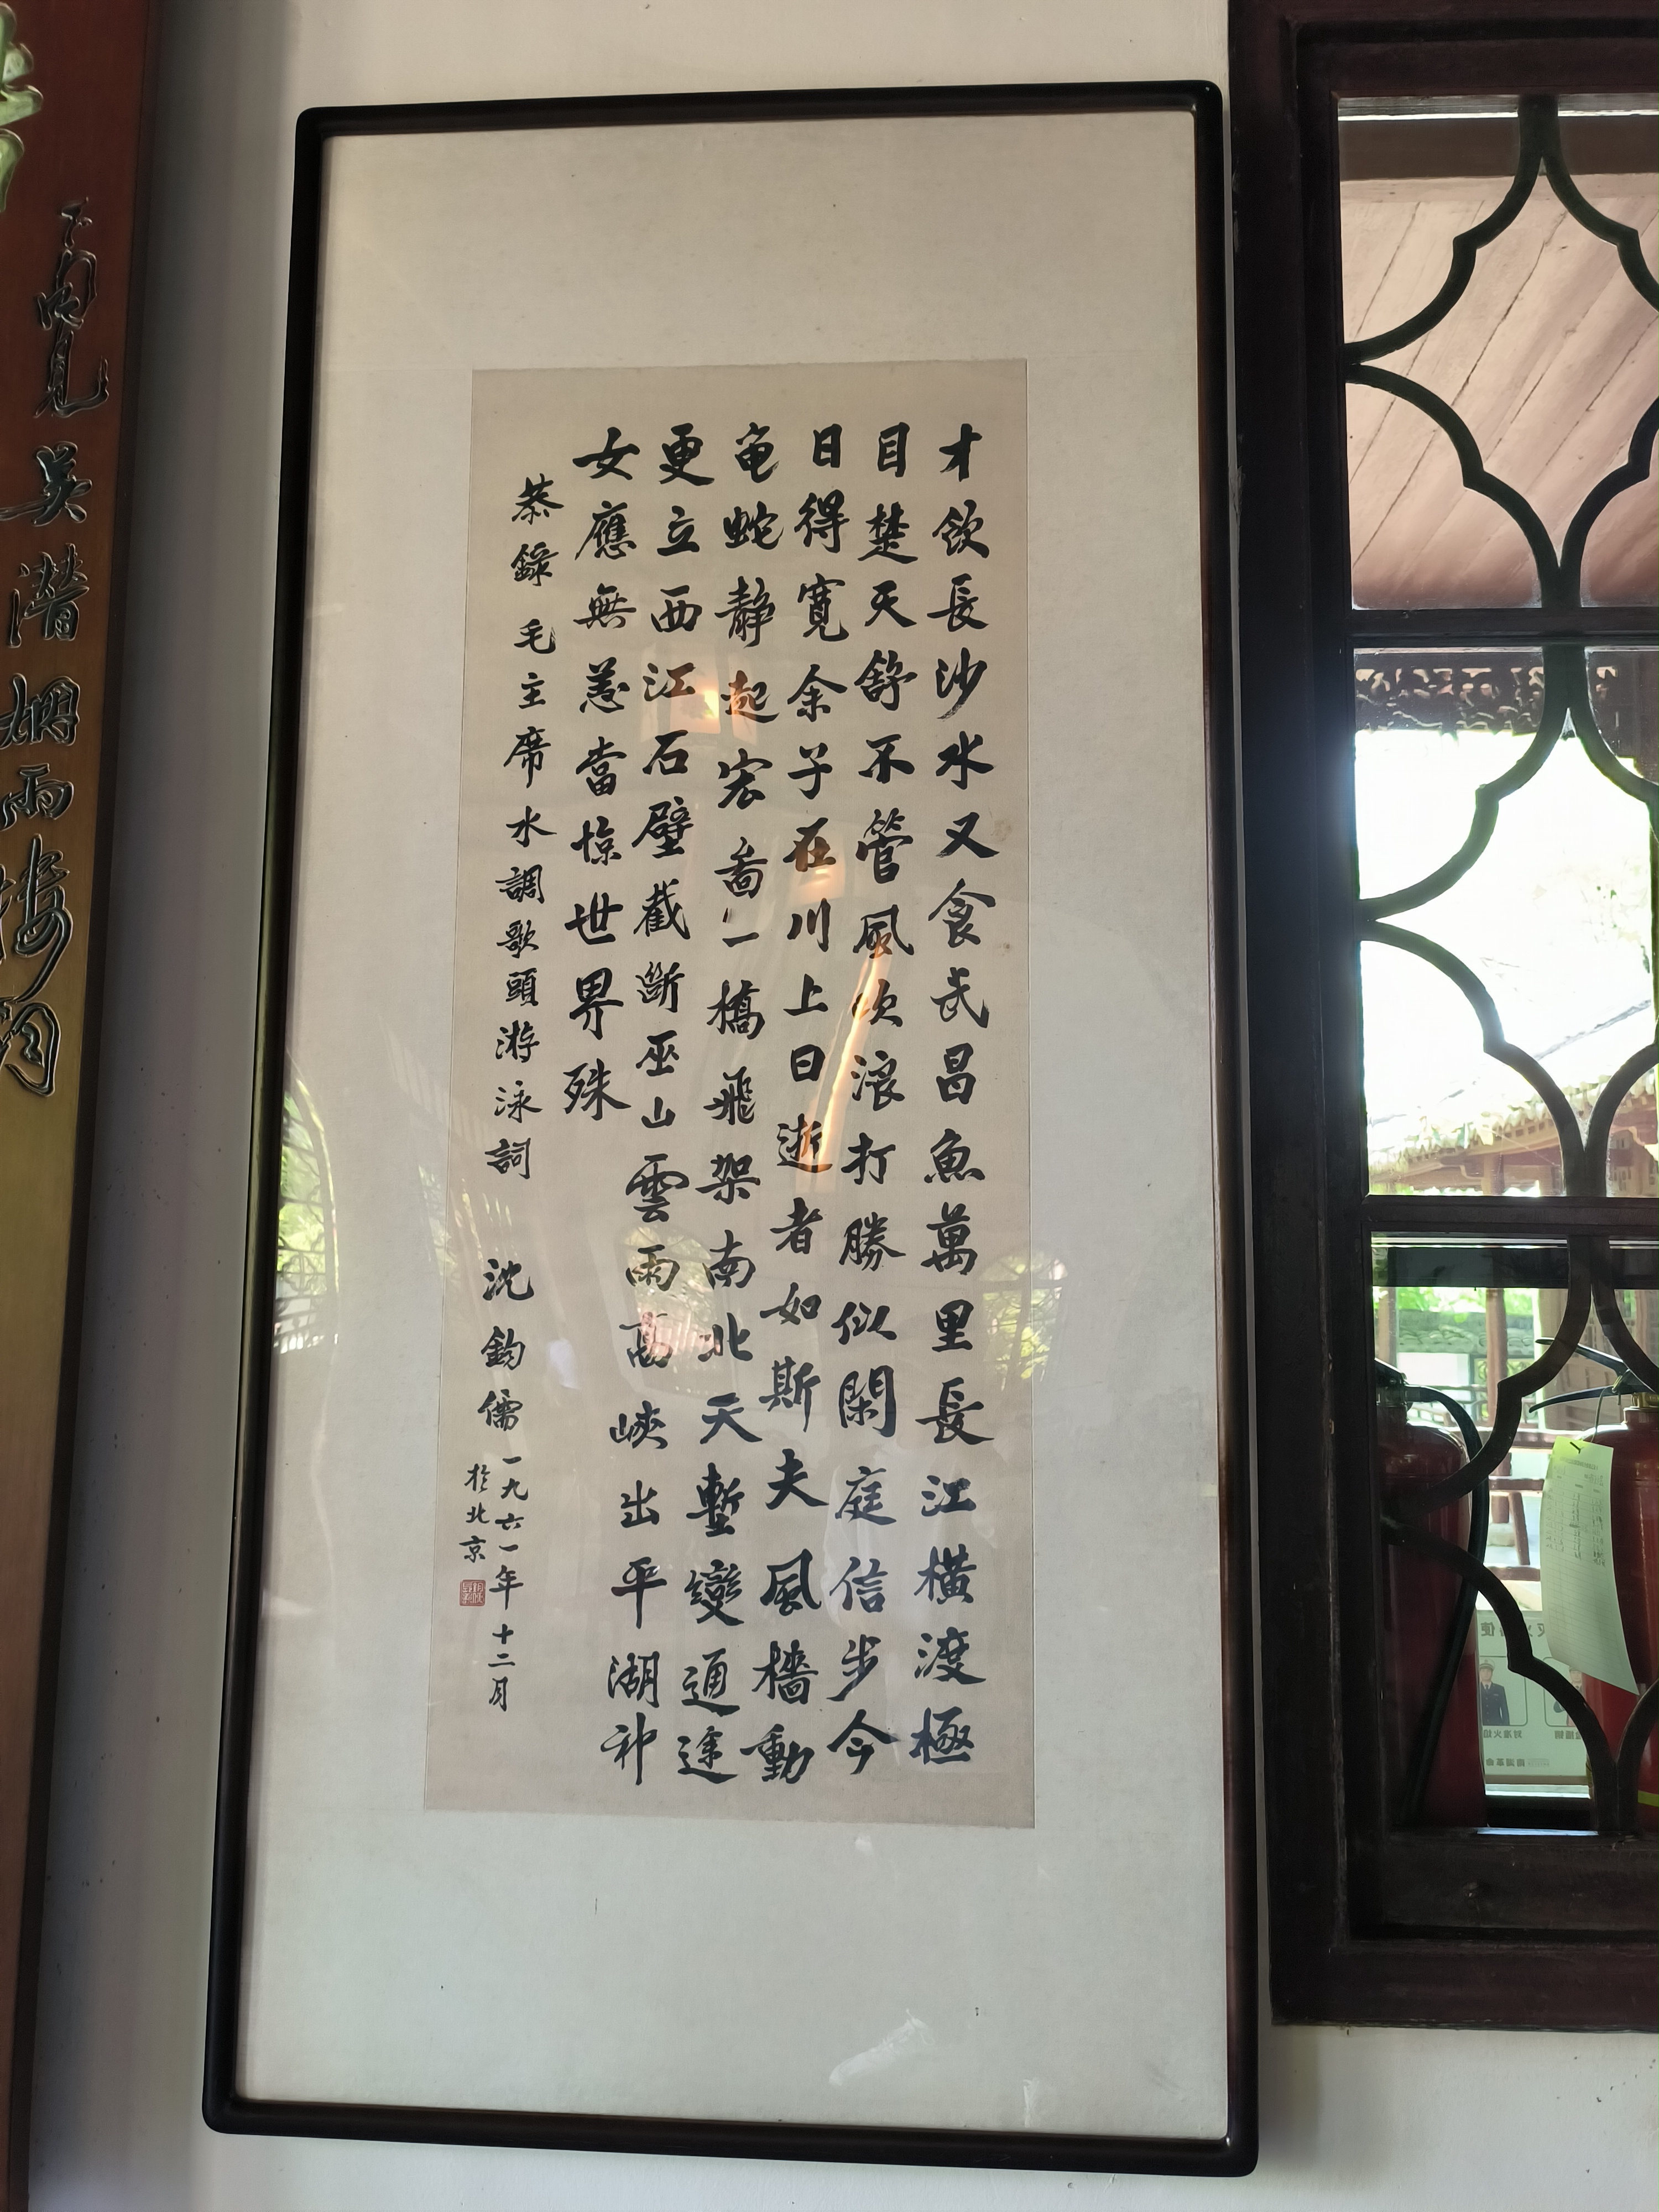 才飲長沙水又食武昌魚萬里長江橫渡極
目楚天舒不管風吹浪打勝似閑庭信步今
日得寬余子在川上曰逝者如斯夫風檣動
龟蛇靜起宏啚一橋飛架南北天塹變通途
更立西江石壁截斷巫山雲雨高峽出平湖神
女應無恙當惊世界殊
恭錄毛主席水調歌頭游泳詞
沈鈞儒
一九六一年十二月
於北京
吳潛烟雨樓